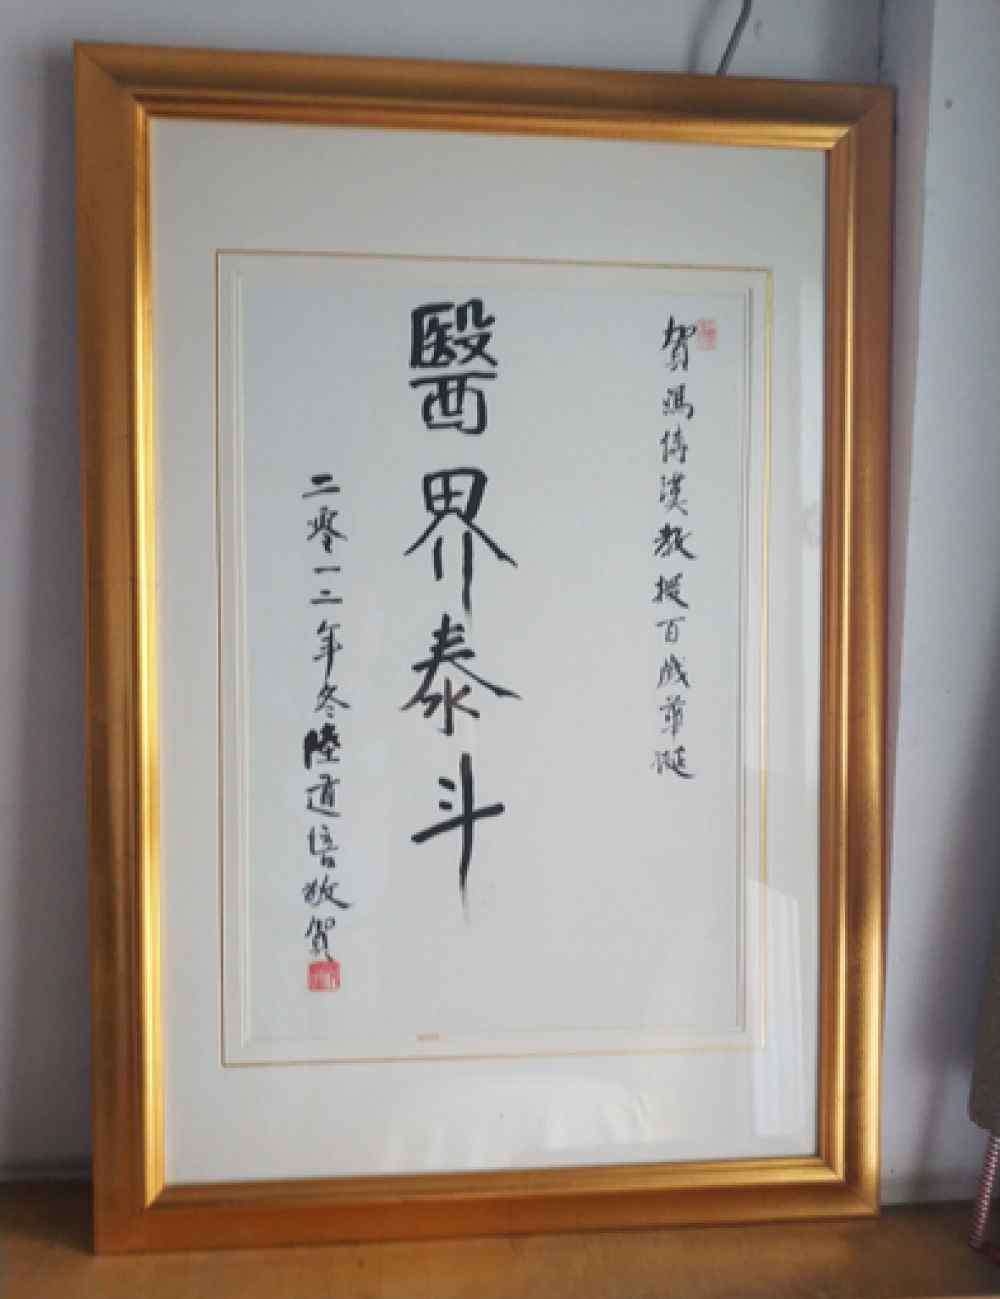 賀馮傳漢教授百歲華誕
醫界泰斗
二零一二年冬陸道培敬賀